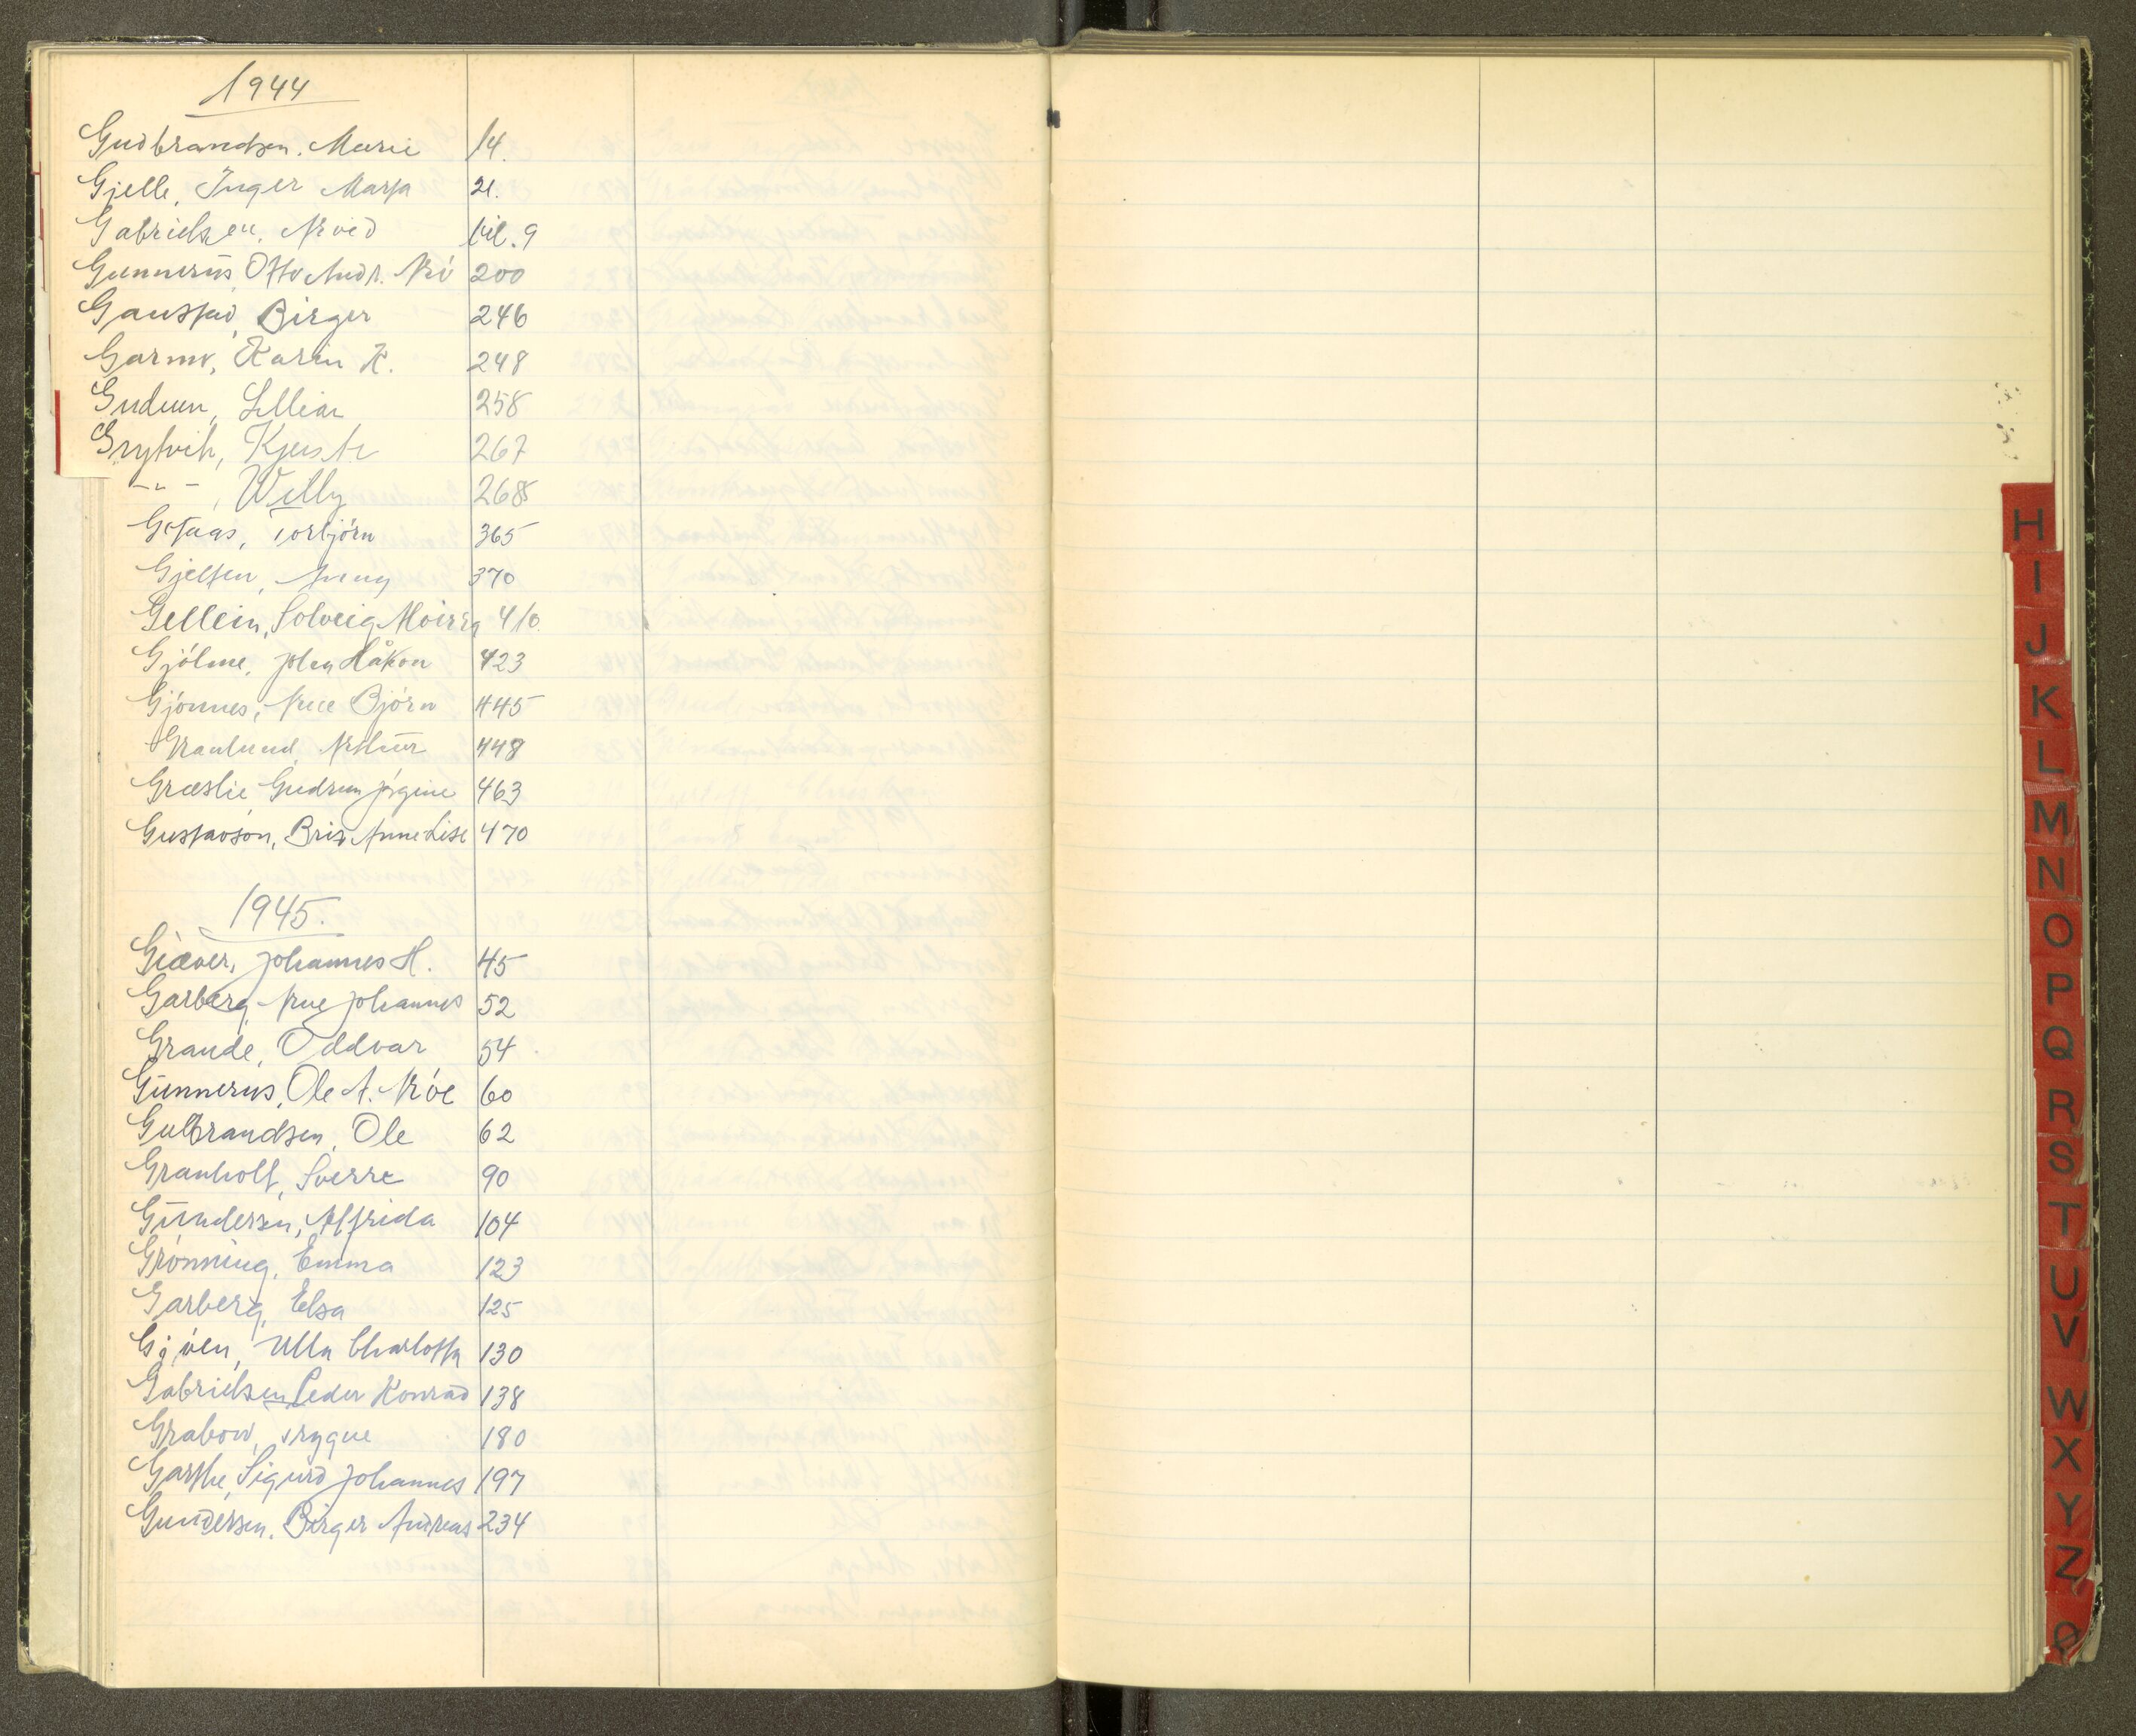 1944
Gudbrandsen, Marie 14.
Gjelle, Inger Marja 21.
Gabrielsen, Arvid bil. 9
Gunnerus, Otto Andr. Krö 200
Gaustad, Birger 246
Garmo, Karin K. 248
Gudmen, Lillian 258
Grytvik, Kjersti 267
-"- , Willy 268
Getaas, Torbjörn 365
Gjelten, Anny 370
Gellein, Solveig Moirig 410.
Gjölme, John Håkon 423
Gjönnes, Arne Björn 445
Granlund, Arthur 448
Græslie Gudrun Jörgine 463
Gustavson, Brix Anne-Lise 470
1945.
Giæver, Johannes H. 45
Garberg, Arne Johannes 52
Grande, Oddvar 54
Gunnerus, Ole A. Kröe 60
Gulbrandsen, Ole 62
Granholt, Sverre 90
Gundersen, Alfrida 104
Grönning, Emma 123
Garberg, Elsa 125
Ulla Charlotta 130
Gabrielsen, Peder Konrad 138
Grabow, Trygve 180
Garthe, Sigurd Johannes 197
Gundersen, Birger Andreas 234
H
I
J
K
L
M
N
O
P
Q
R
S
T
U
V
W
X
Y
Z
Ø